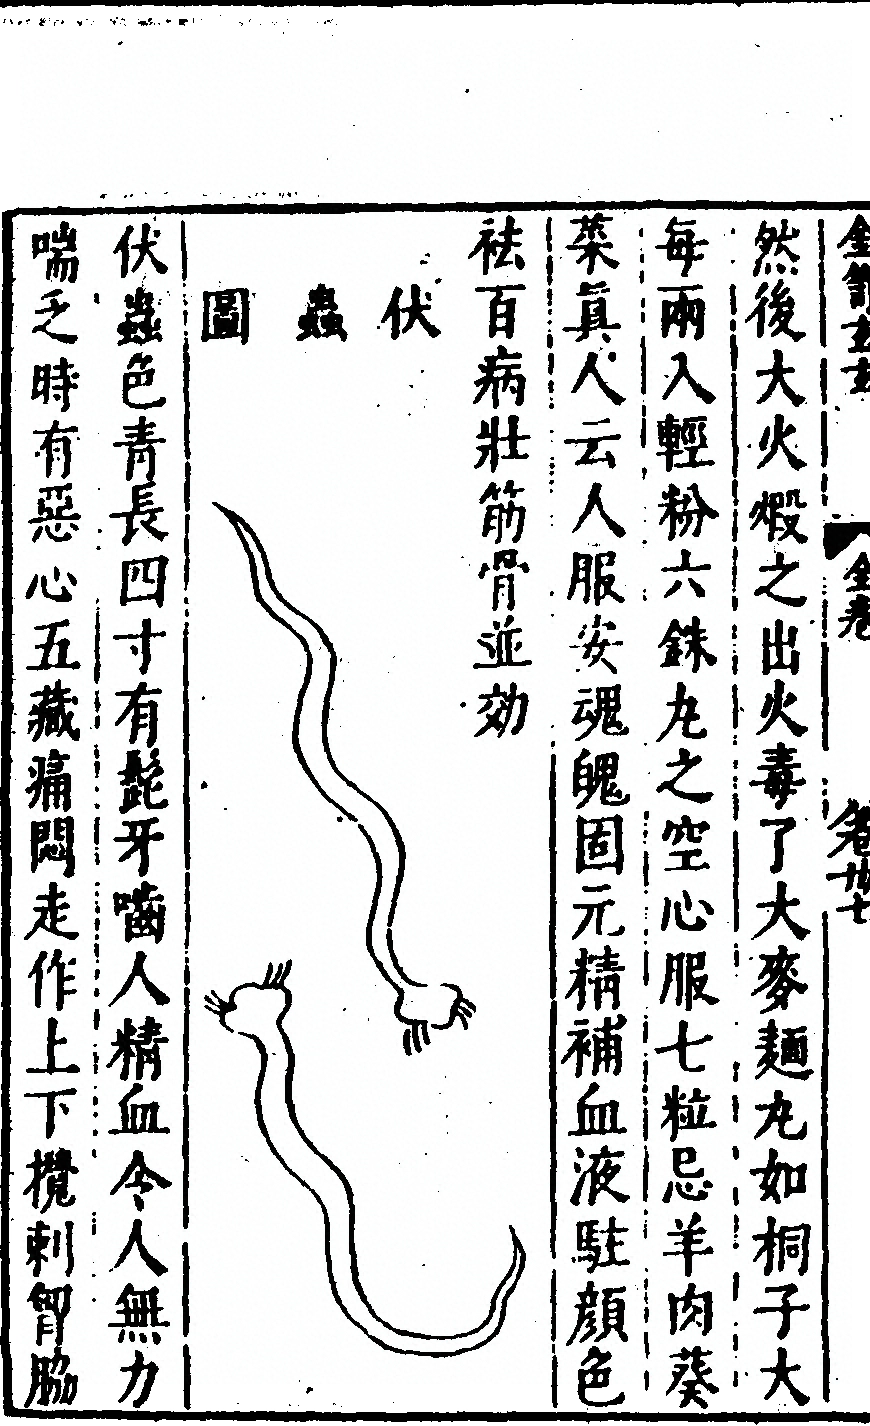 然後大火煅之出火毒了大麥麺丸如桐子大
每兩入輕粉六銖丸之空心服七粒忌羊肉葵
菜真人云人服安魂魄固元精補血液駐顔色
袪百病壯筋骨並効
伏蟲圖
伏蟲色青長四寸有髭牙嚙人精血令人無力
喘乏時有惡心五藏痛悶走作上下攪刺胷脇